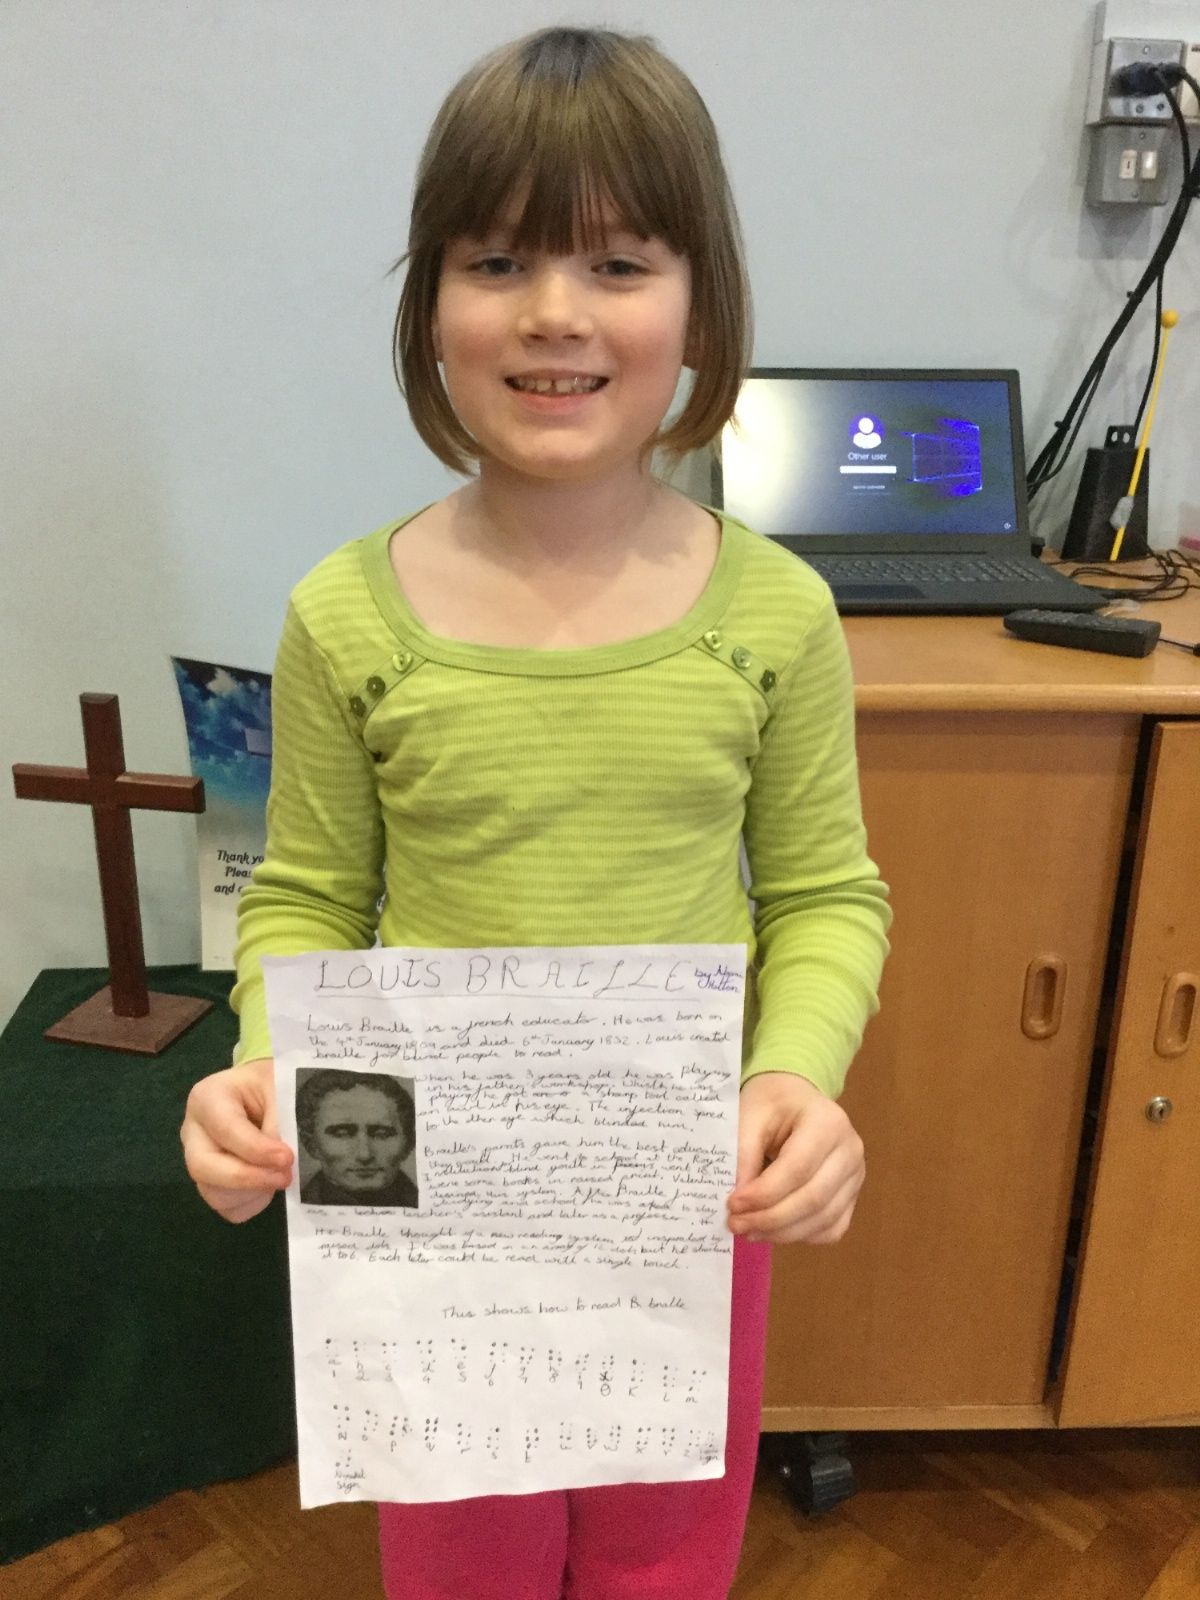 Other user
Thank yo
Pleas
and
LOUIS BRAILLE by
Louis Braille is a french educator. He was born on
the 4th January 1809 and died 6th January 1852. Louis created
braille for blind people to read.
When he was 3 years old he was playing
in his father's workshop. Whislt he was
playing he got a sharp tool called
an awl in his eye. The infection spred
to the other eye which blinded him.
Braille's parnts gave him the best education
they could. He went to school at the Royal
blind youth in went to
were some books in raised print. Valentin
this system. After Braille
studying and school he was asked to stay
as a teacher's asistant and later as a professor.
Braille thought of a new reading system by
raised dots. It was based on an array of 12 dots but he
it to 6. Each leter could be read with a single touch.
This shows how to read braille
a b c d e f g h i K L m
1 2 3 4 5 6 7 8 9 0
N o p q r s t u v w x Y z sign
sign